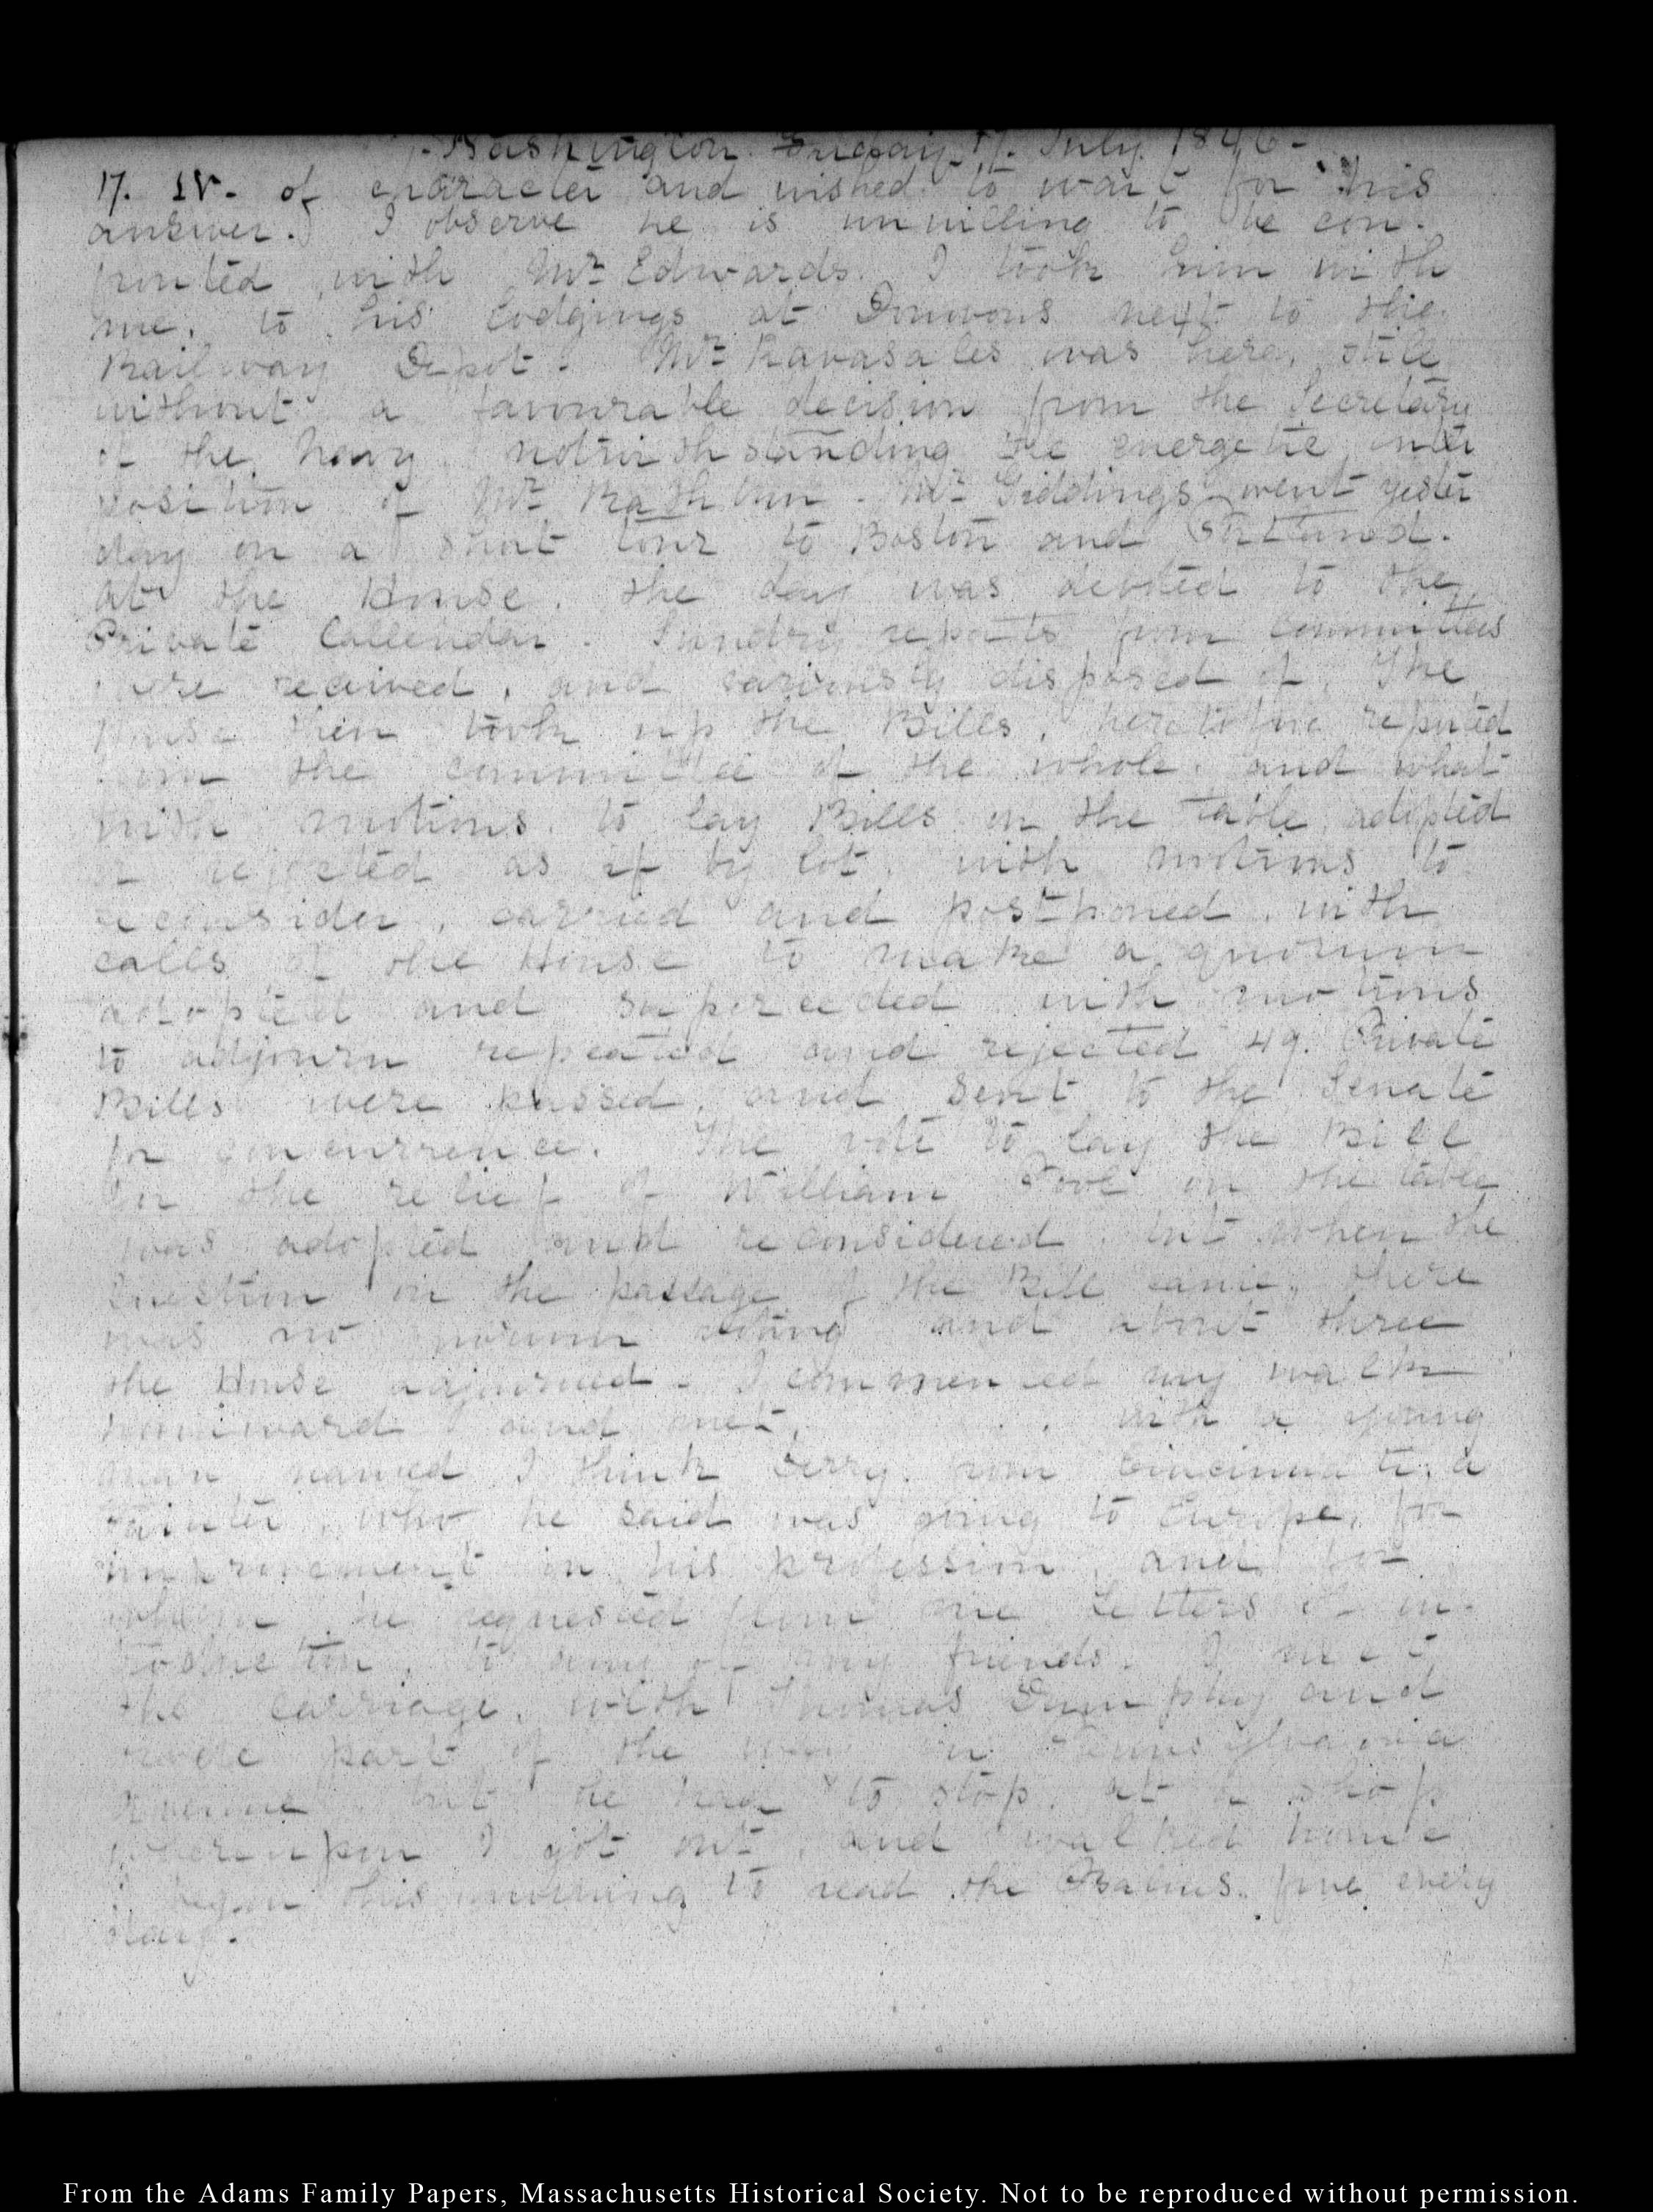 Washington Friday 17. July 1846-
17. IV. of character and wished to wait for his
answer. I observe he is unwilling to be con-
fronted with Mr Edwards. I took him with
me, to his lodgings at next to the
Railway Depot. Mr was here, still
without a favourable decision from the Secretary
of the Navy notwithstanding the energetic inter
position of Mr Rathbun. Mr Giddings went yester
day on a short tour to Boston and
At the House. the day was devoted to the
Private Callendar. Sundry reports from Committees
were received, and variously disposed of. The
House then took up the Bills, heretofore reported
from the committee of the whole, and what
with motions to lay Bills on the table adopted
or rejected as if by lot, with motions to
reconsider, carried and postponed, with
calls of the House to make a quorum
adopted and superceded with motions
to adjourn repeated and rejected 49. Private
Bills were passed, and sent to the Senate
for concurrence. The vote to lay the Bill
for the relief of William on the table
was adopted and reconsidered, but when the
Question on the passage of the Bill came, there
was no quorum voting and about three
the House adjourned. I commenced my walk
homeward and met, with a young
man named I think from Cincinnati, a
Painter, who he said was going to Europe, for
improvement in his profession, and for
whom he requested from me Letters of in-
troduction, to any of my friends. I met
the carriage, with Thomas Dumphy and
rode part of the way in Pennsylvania
Avenue but he had to stop at a shop
whereupon I got out, and walked home
I began this morning to read the Psalms. five every
day.
From the Adams Family Papers, Massachusetts Historical Society. Not to be reproduced without permission.